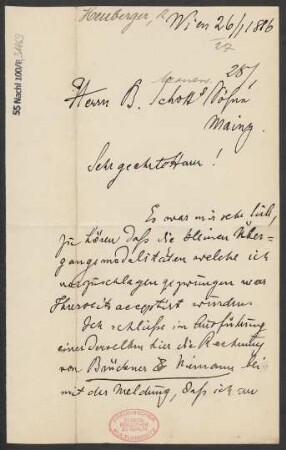 Heuberger, R
Wien 26/1 1896
27
28/1
Herrn B. Schott's Söhne
Mainz.
Sehr geehrter Herr!
Es war mir sehr lieb,
zu hören daß die kleinen Über-
gangsmodalitäten welche ich
vorzuschlagen gezwungen war
Ihrerseits acceptirt wurden
Ich schließe in Ausführung
einer derselben hier die Rechnung
von Brückner & Niemann bei
mit der Meldung, daß ich zu
55 Nachl 100/B,